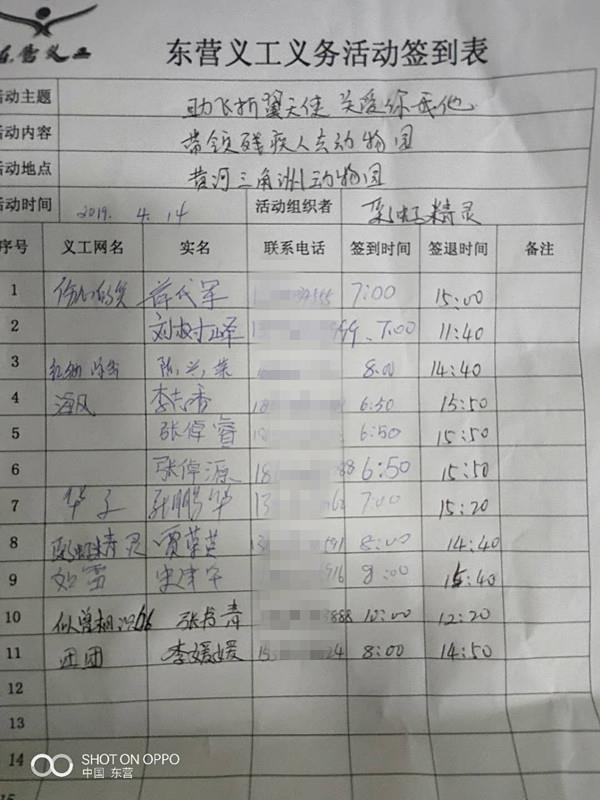 东营义工
东营义工义务活动签到表
活动主题 助飞折翼天使 关爱你我他
活动内容 带领残疾人去动物园
活动地点 黄河三角洲动物园
活动时间 2019. 4. 14 活动组织者 彩虹精灵
序号 义工网名 实名 联系电话 签到时间 签退时间 备注
1 7:00 15:00
2 刘树峰 7:00 11:40
3 陈兴荣 8:00 14:40
4 海风 李志香 18 6:50 15:50
5 张倬睿 6:50 15:50
6 张倬源 18 88 6:50 15:50
7 华子 张鹏华 13 7:00 15:20
8 彩虹精灵 贾荣英 8:00 14:40
9 如雷 916 15:40
10 似曾相识66 张书青 888 10:00 12:20
11 团团 李媛媛 24 8:00 14:50
12
13
14
15
SHOT ON OPPO
中国 东营